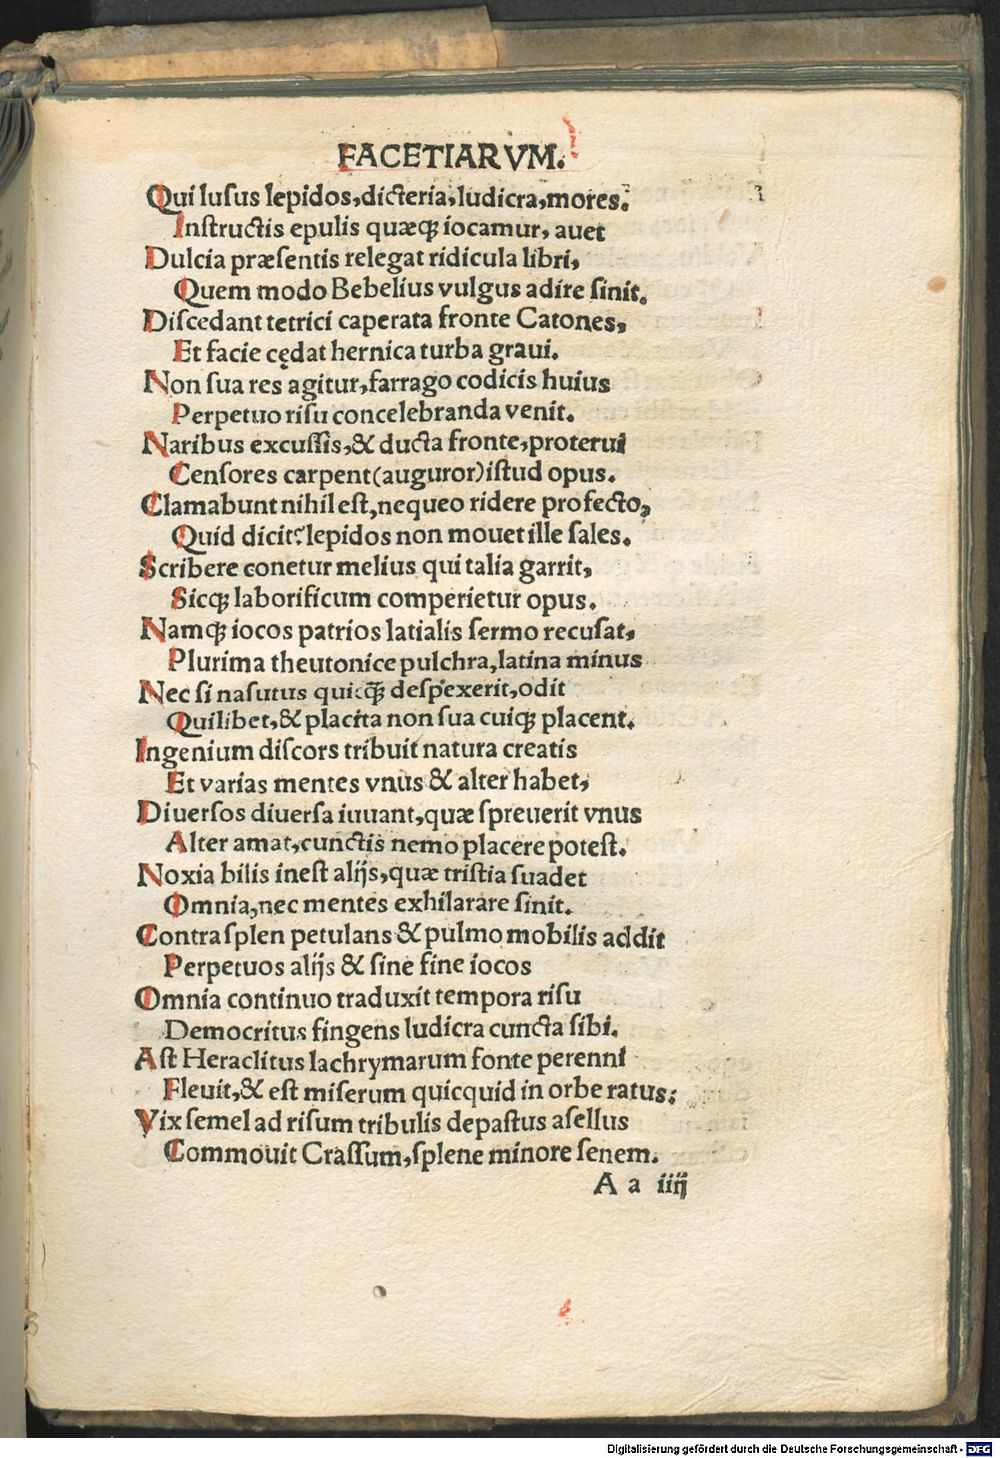 FACETIARVM.
Qui lusus lepidos, dicteria, ludicra, mores.
Instructis epulis quæq; iocamur, auet
Dulcia præsentis relegat ridicula libri,
Quem modo Bebelius vulgus adire sinit.
Discedant tetrici caperata fronte Catones,
Et facie cędat hernica turba graui.
Non sua res agitur, farrago codicis huius
Perpetuo risu concelebranda venit.
Naribus excussis, & ducta fronte, proterui
Censores carpent (auguror) istud opus.
Clamabunt nihil est, nequeo ridere profecto,
Quid dicit? lepidos non mouet ille sales.
Scribere conetur melius qui talia garrit,
Sicq; laborificum comperietur opus.
Namq; iocos patrios latialis sermo recusat,
Plurima theutonice pulchra, latina minus
Nec si nasutus quicq̃ despexerit, odit
Quilibet, & placita non sua cuiq; placent.
Ingenium discors tribuit natura creatis
Et varias mentes vnus & alter habet,
Diuersos diuersa iuuant, quæ spreuerit vnus
Alter amat, cunctis nemo placere potest.
Noxia bilis inest alijs, quæ tristia suadet
Omnia, nec mentes exhilarare sinit.
Contra splen petulans & pulmo mobilis addit
Perpetuos alijs & sine fine iocos
Omnia continuo traduxit tempora risu
Democritus fingens ludicra cuncta sibi.
Ast Heraclitus lachrymarum fonte perenni
Fleuit, & est miserum quicquid in orbe ratus:
Vix semel ad risum tribulis depastus asellus
Commouit Crassum, splene minore senem.
A a iiij
Digitalisierung gefördert durch die Deutsche Forschungsgemeinschaft - DFG